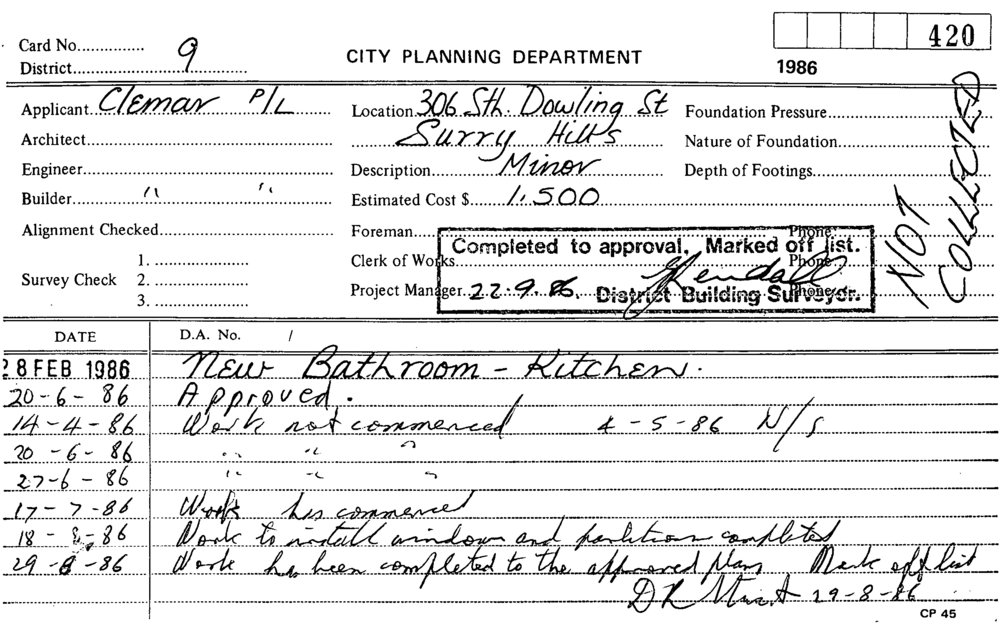 Card No. 9 CITY PLANNING DEPARTMENT 420
District 1986
Applicant Clemar P/L Location 306 Sth. Dowling St Foundation Pressure
Architect Surry Hills Nature of Foundation
Engineer Description Minor Depth of Footings
Builder " " Estimated Cost $ 1,500
NOT COLLECTED
Alignment Checked Foreman Phone
Completed to approval. Marked off list.
Survey Check 1. Clerk of Works Phone
2.
3. Project Manager 22.9.86. Kendall Phone
District Building Surveyor.
DATE D.A. No. /
28 FEB 1986 New Bathroom - Kitchen.
20-6-86 Approved.
14-4-86 Work not commenced 4-5-86 N/S
20-6-86 " " "
27-6-86 " " "
17-7-86 Work has commenced
18-8-86 Work to install windows and partitions completed
29-8-86 Work has been completed to the approved plans Mark off list
29-8-86
CP 45